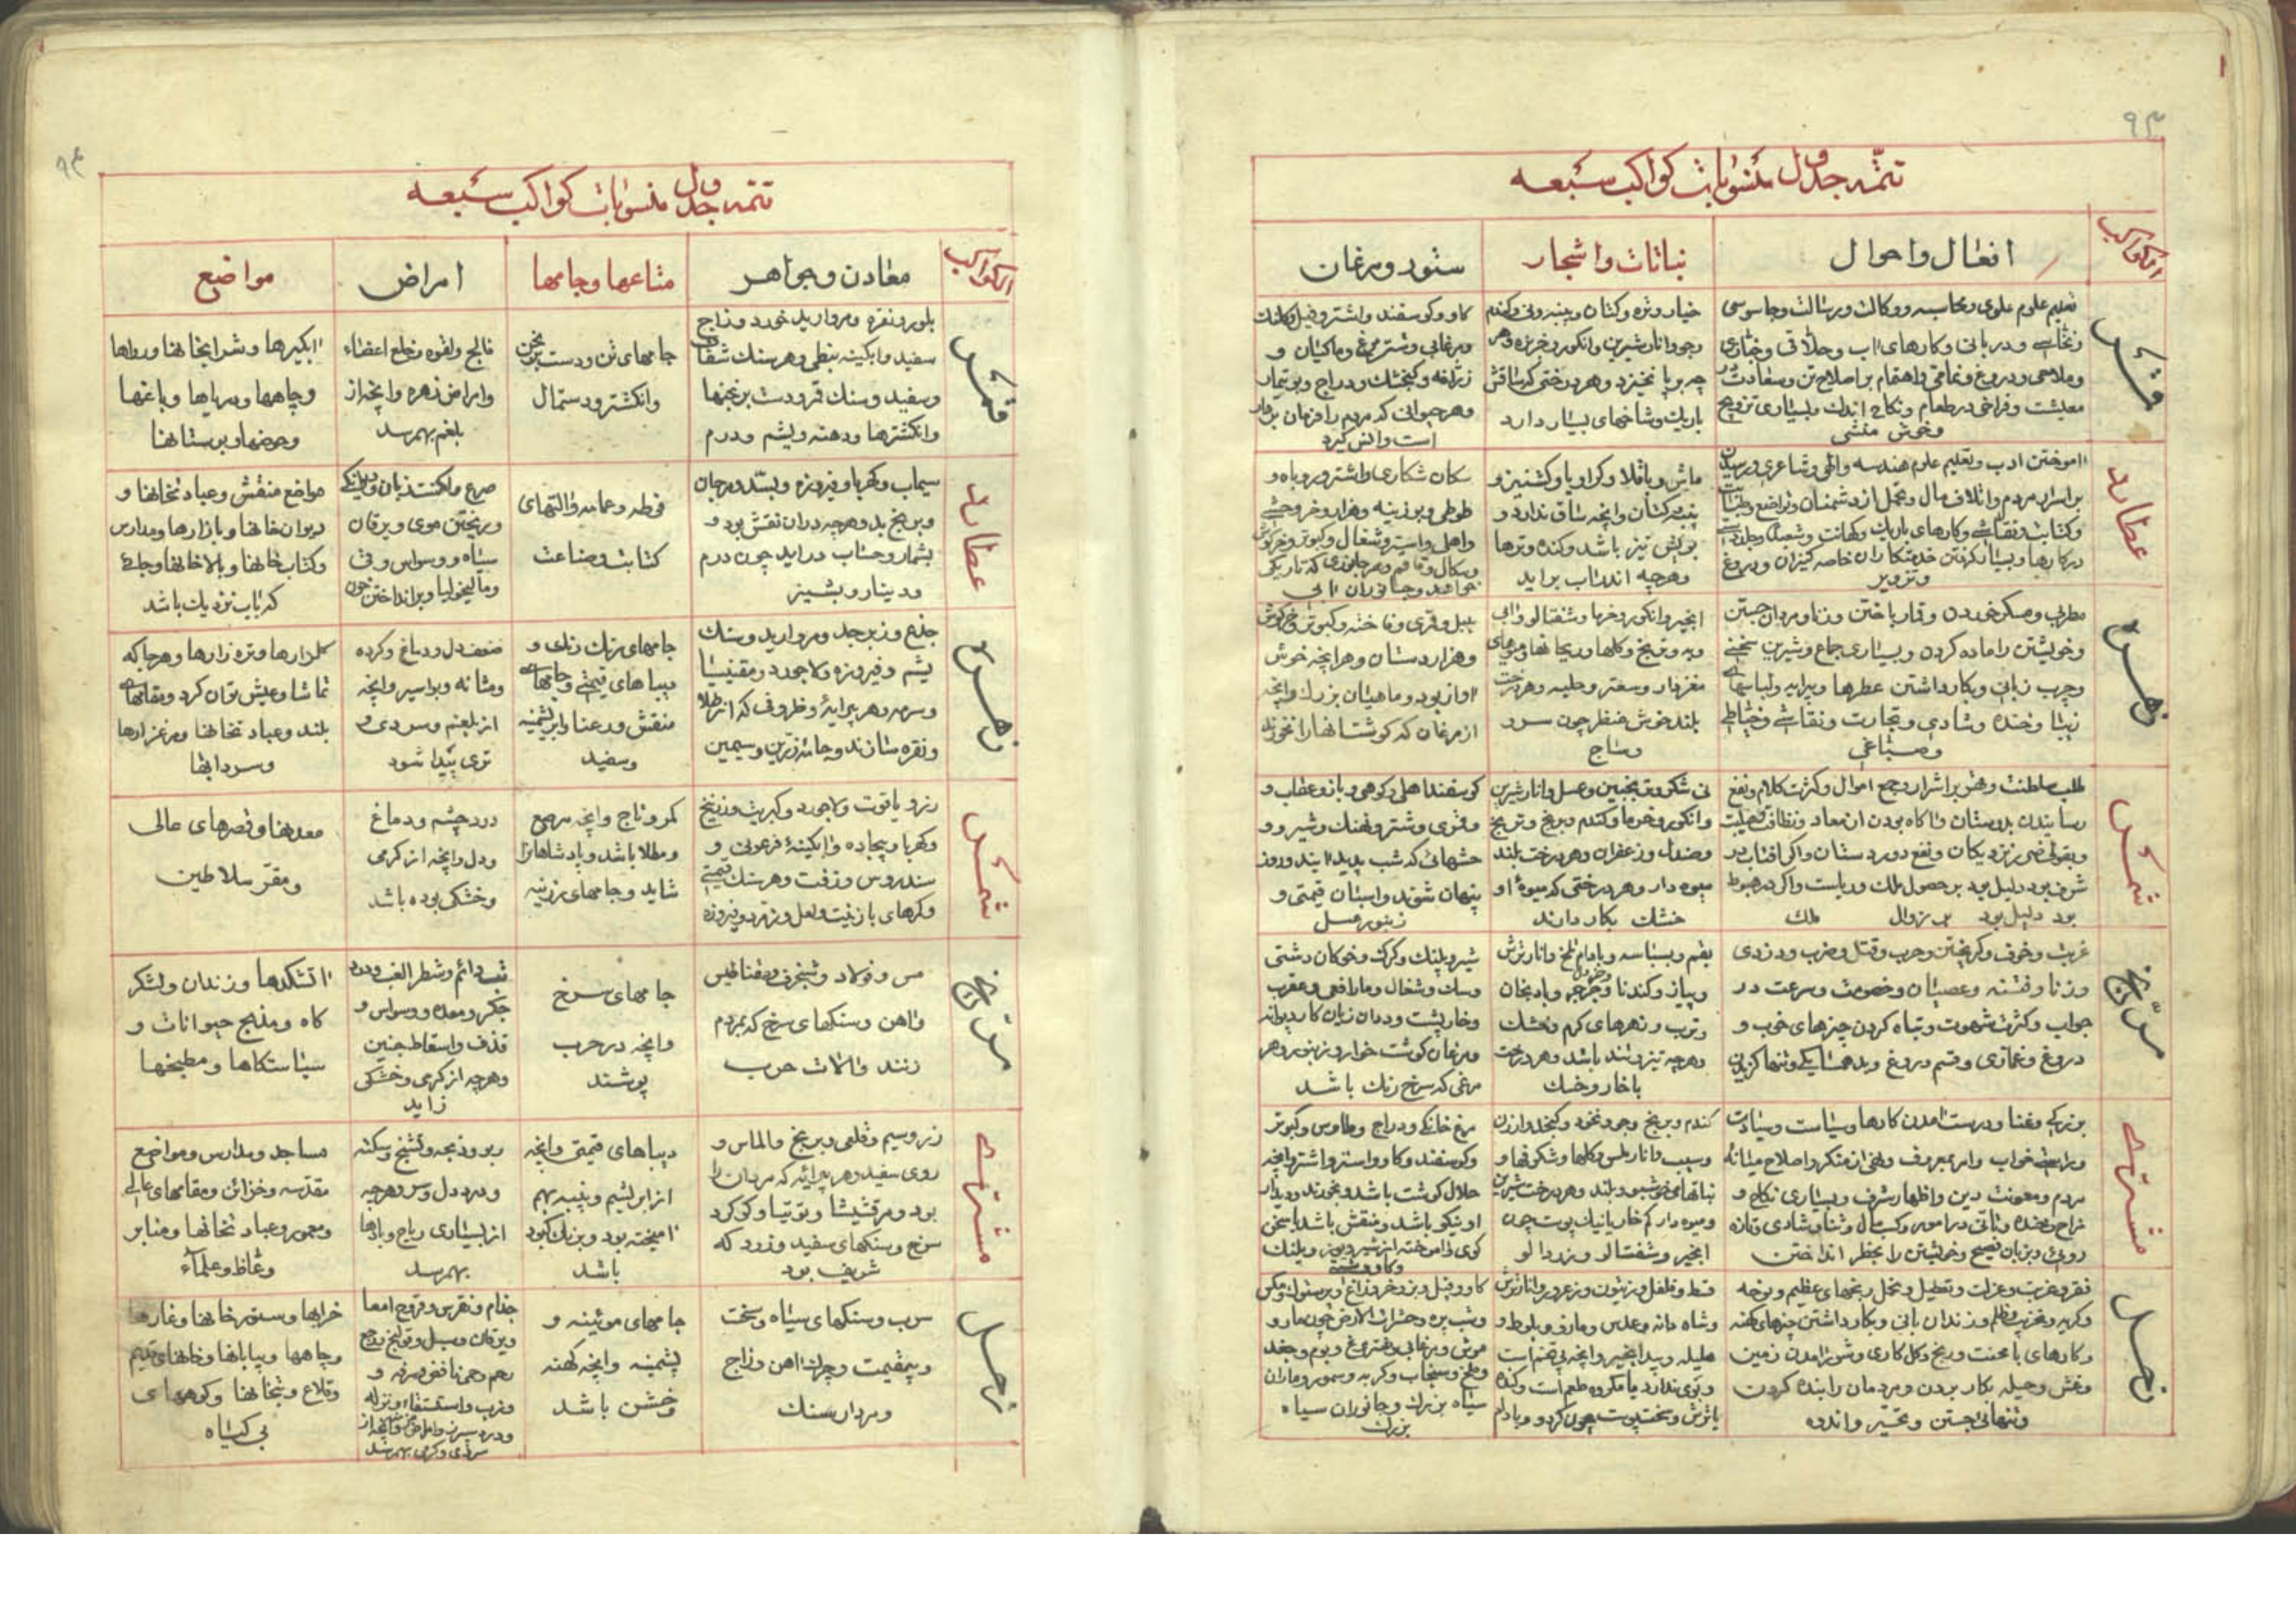 ۹۳
تتمّه جدول منسوبات کواکب سبعه
الکواکب
افعال واحوال
نباتات واشجار
ستور ومرغان
قمر
تعلیم علوم علوی ومحاسبه ووکالت ورسالت وجاسوسی
ودربانی وکارهای اب وحلاقی
وملاحی ودروغ ونمامی واهتمام بر اصلاح تن وسعادت در
معیشت وفراخی در طعام ونکاح اندک وبسیاری تزویج
وخوش منشی
خیار وتره وکتان وپنبه ونی وکندم
وجو وانار شیرین وانکور وخربزه وهر
چه بر پا نخیزد وهر درختی که ساقش
باریک وشاخهای بسیار دارد
کاو وکوسفند واشتر وفیل
ومرغابی وشترمرغ وماکیان و
زرافه وکنجشک ودراج وبوتیمار
وهر حیوانی که مردم را فرمان بردار
است وانس کیرد
عطارد
اموختن ادب وتعلیم علوم هندسه والهی وشاعری
بر اسرار مردم واتلاف مال وتحمل از دشمنان وتواضع
وکتابت ونقاشی وکارهای باریک وکهانت
در کارها وبسیار کرفتن خدمتکاران خاصه کنیزان ودروغ
وتزویر
ماش وباقلا وکراویا وکشنیز و
پنبه کتان وانچه ساق ندارد و
بویش تیز باشد وکنده وترها
وهرچه اندر اب براید
سکان شکاری واشتر وروباه و
طوطی وبوزینه وهزار وخر وحشی
واهلی واستر وشغال وکبوتر وخرکوش
زهره
مطربی ومسکر خوردن وقمار باختن وزنا ومردان جستن
وخویشتن را ماده کردن وبسیاری جماع وشیرین سخنی
وچرب زبانی وبکار داشتن عطرها وپیرایه ولباسهای
زیبا وخنده وشادی وتجارت ونقاشی وخیاطی
وصباغی
انجیر وانکور وخرما وشفتالو والبی
وبه وترنج وکلها وریحانها ومیوهای
مغزدار وسعتر وحلبه وهر درخت
بلند خوش منظر چون سرو
وساج
بلبل وقمری وفاخته وکبوتر وخرکوش
وهزاردستان وهر انچه خوش
اواز بود وماهیان بزرک وانچه
از مرغان که کوشت انها را نخورند
شمس
طلب سلطنت وقهر بر اشرار وجمع اموال وکثرت کلام ونفع
رسانیدن بدوستان واکاه بودن از معاد
نزدیکان ونفع دور دستان واکر افتاب در
شرف بود دلیل بود بر حصول ملک وریاست واکر در هبوط
بود دلیل بود بر زوال ملک
نی شکر وترنجبین وعسل وانار شیرین
وانکور وخرما وکندم وبرنج وترنج
وصندل وزعفران وهر درخت بلند
میوه دار وهر درختی که میوهٔ او
خشک بکار دارند
کوسفند اهلی وکوهی وباز وعقاب و
وقمری وشتر ونهنک وشیر و و
حشراتی که شب پدید ایند وروز
پنهان شوند واسبان قیمتی و
زنبور عسل
مریخ
غربت وخوف وکریختن وحرب وقتل وضرب ودزدی
وزنا وفتنه وعصیان وخصومت وسرعت در
جواب وکثرت شهوت وتباه کردن چیزهای خوب و
دروغ وغمازی وقسم دروغ وبدهمسایکی وتنها کزینی
بقم وبسباسه وبادام تلخ وانار ترش
وپیاز وکندنا وجرجیر وبادنجان
وترب وزهرهای کرم وخشک
وهرچه تیز وتند باشد وهر درخت
با خار وخسک
شیر وپلنک وکرک وخوکان دشتی
وسک وشغال ومار افعی وعقرب
وخارپشت وددان زیان کار دیوانه
ومرغان کوشت خوار وزنبور وهر
مرغی که سرخ رنک باشد
مشتری
بزرکی وغنا ودرست امدن کارها وسیاست وسیادت
خواب وامر بمعروف ونهی از منکر واصلاح میانهٔ
مردم ومعونت دین واظهار شرف وبسیاری نکاح و
مزاح وخنده
روئی وزبان فصیح وخویشتن را بخطر انداختن
کندم وبرنج وجو ونخود وکنجد وارزن
وسیب وانار ملس وکلها وشکوفها و
نباتهای خوشبو وبلند وهر درخت شیرین
ومیوه دار کم خار یا نیک پوست چون
انجیر وشفتالو وزردالو
مرغ خانکی ودراج وطاوس وکبوتر
وکوسفند وکاو واستر واشتر وانچه
حلال کوشت باشد وبخورند ودیدار
او نیکو باشد ومنقش باشد یا سخن
کوی
زحل
فقر وغربت وعزلت وتعطیل وبخل رنجهای عظیم ونوحه
وکریه وتخریب وظلم وزندان بانی وبکار داشتن چیزهای کهنه
وکارهای با محنت ورنج وکل کاری وشوراندن زمین
وغش وحیله بکار بردن ومردمان را بنده کردن
وتنهائی جستن وتحیّر واندوه
وفلفل وزیتون وزعرور وانار ترش
وشاه دانه وعدس ومازو وبلوط و
هلیله وبیدانجیر وانچه بی تخم است
وبوی ندارد یا مکروه طعم است وکنده
یا ترش وسخت پوست چون کردو وبادام
کاو وفیل وبز وخر وزاغ وپرستوک ومکس
وشب پره وحشرات الارض چون مار و
موش ومرغابی وشترمرغ وبوم وجغد
وملخ وسنجاب وکربه وسمور وماران
سیاه بزرک وجانوران سیاه
بزرک
۹۴
تتمّه جدول منسوبات کواکب سبعه
الکواکب
معادن وجواهر
متاعها وجامها
امراض
مواضع
قمر
بلور ونقره ومروارید خورد وزاج
سفید وابکینه نبطی وهر سنک شفاف
وسفید وسنک قمر ودست برنجنها
وانکشترها ودهنه ویشم ودرم
جامهای تن ودست برنجن
وانکشتر ودستمال
فالج ولقوه وخلع اعضاء
وامراض زهره وانچه از
بلغم بهم رسد
ابکیرها وشرابخانها ورواها
وچاهها ودریاها وباغها
وحوضها وبوستانها
عطارد
سیماب وکهربا وفیروزه وبسّد ومرجان
وبرنج بد وهرچه در ان نقش بود و
بشمار وحساب دراید چون درم
ودینار وپشیز
فوطه وعمامه والتهای
کتابت وصناعت
صرع ولکنت زبان
وریختن موی ویرقان
سیاه ووسواس وقی
ومالیخولیا وبرانداختن خون
مواضع منقش وعبادتخانها و
دیوان خانها وبازارها ومدارس
وکتاب خانها وبالاخانها وجائی
که باب نزدیک باشد
زهره
جذع وزبرجد ومروارید وسنک
یشم وفیروزه ولاجورد ومقنیسا
وسرمه وهر پیرایهٔ وظروفی که از طلا
ونقره سازند وجامه زرین وسیمین
جامهای رنک رنک و
دیباهای قیمتی وجامهای
منقش ورعنا وابریشمینه
وسفید
ضعف دل ودماغ وکرده
ومثانه وبواسیر وانچه
از بلغم وسردی و
تری پیدا شود
کلزارها وتره زارها وهر جا که
تماشا وعیش توان کرد ومقامهای
بلند وعبادتخانها ومرغزارها
وسردابها
شمس
زر ویاقوت ولاجورد وکبریت وزرنیخ
وکهربا وبیجاده وابکینهٔ فرعونی و
سندروس وزفت وهر سنک قیمتی
وکمرهای با زینت ولعل وزمرد وفیروزه
کمر وتاج وانچه مرصع
ومطلا باشد وپادشاهانرا
شاید وجامهای زرینه
درد چشم ودماغ
ودل وانچه از کرمی
وخشکی بوده باشد
معدنها وقصرهای عالی
ومقرّ سلاطین
مریخ
مس وفولاد وشنجرف ومقناطیس
واهن وسنکهای سرخ که بمردم
زنند والات حرب
جامهای سرخ
وانچه در حرب
پوشند
تب دائم وشطر الغب ودرد
جکر ومعده ووسواس و
قذف واسقاط جنین
وهرچه از کرمی وخشکی
زاید
اتشکدها وزندان ولشکر
کاه ومذبح حیوانات و
سیاستکاها ومطبخها
مشتری
زر وسیم وقلعی وبرنج والماس و
روی سفید وهر پیرائه که مردان را
بود ومرقشیشا وتوتیا وکوکرد
سرخ وسنکهای سفید وزرد که
شریف بود
دیباهای قیمتی وانچه
از ابریشم وپنبه بهم
امیخته بود وبرنک کبود
باشد
ربو وذبحه وتشنج وسکته
ودرد دل وسر وهرچه
از بسیاری ریاح وبادها
بهم رسد
مساجد ومدارس ومواضع
مقدسه وخزائن ومقامهای عالی
ومعمور وعبادتخانها ومنابر
وعّاظ وعلمآء
زحل
سرب وسنکهای سیاه وسخت
وبیقیمت وچرک اهن وزاج
ومردارسنک
جامهای موئینه و
پشمینه وانچه کهنه
وخشن باشد
جذام ونقرس وقروح امعا
ویرقان وسل وقولنج ووجع
رحم وحمی نافض وسرفه و
وجرب واستسقاء ونزله
سردی وکرمی بهم رسد
خرابها وستور خانها وغارها
وچاهها وبیابانها وخانهای قدیم
وقلاع وبتخانها وکوههای
بی کیاه